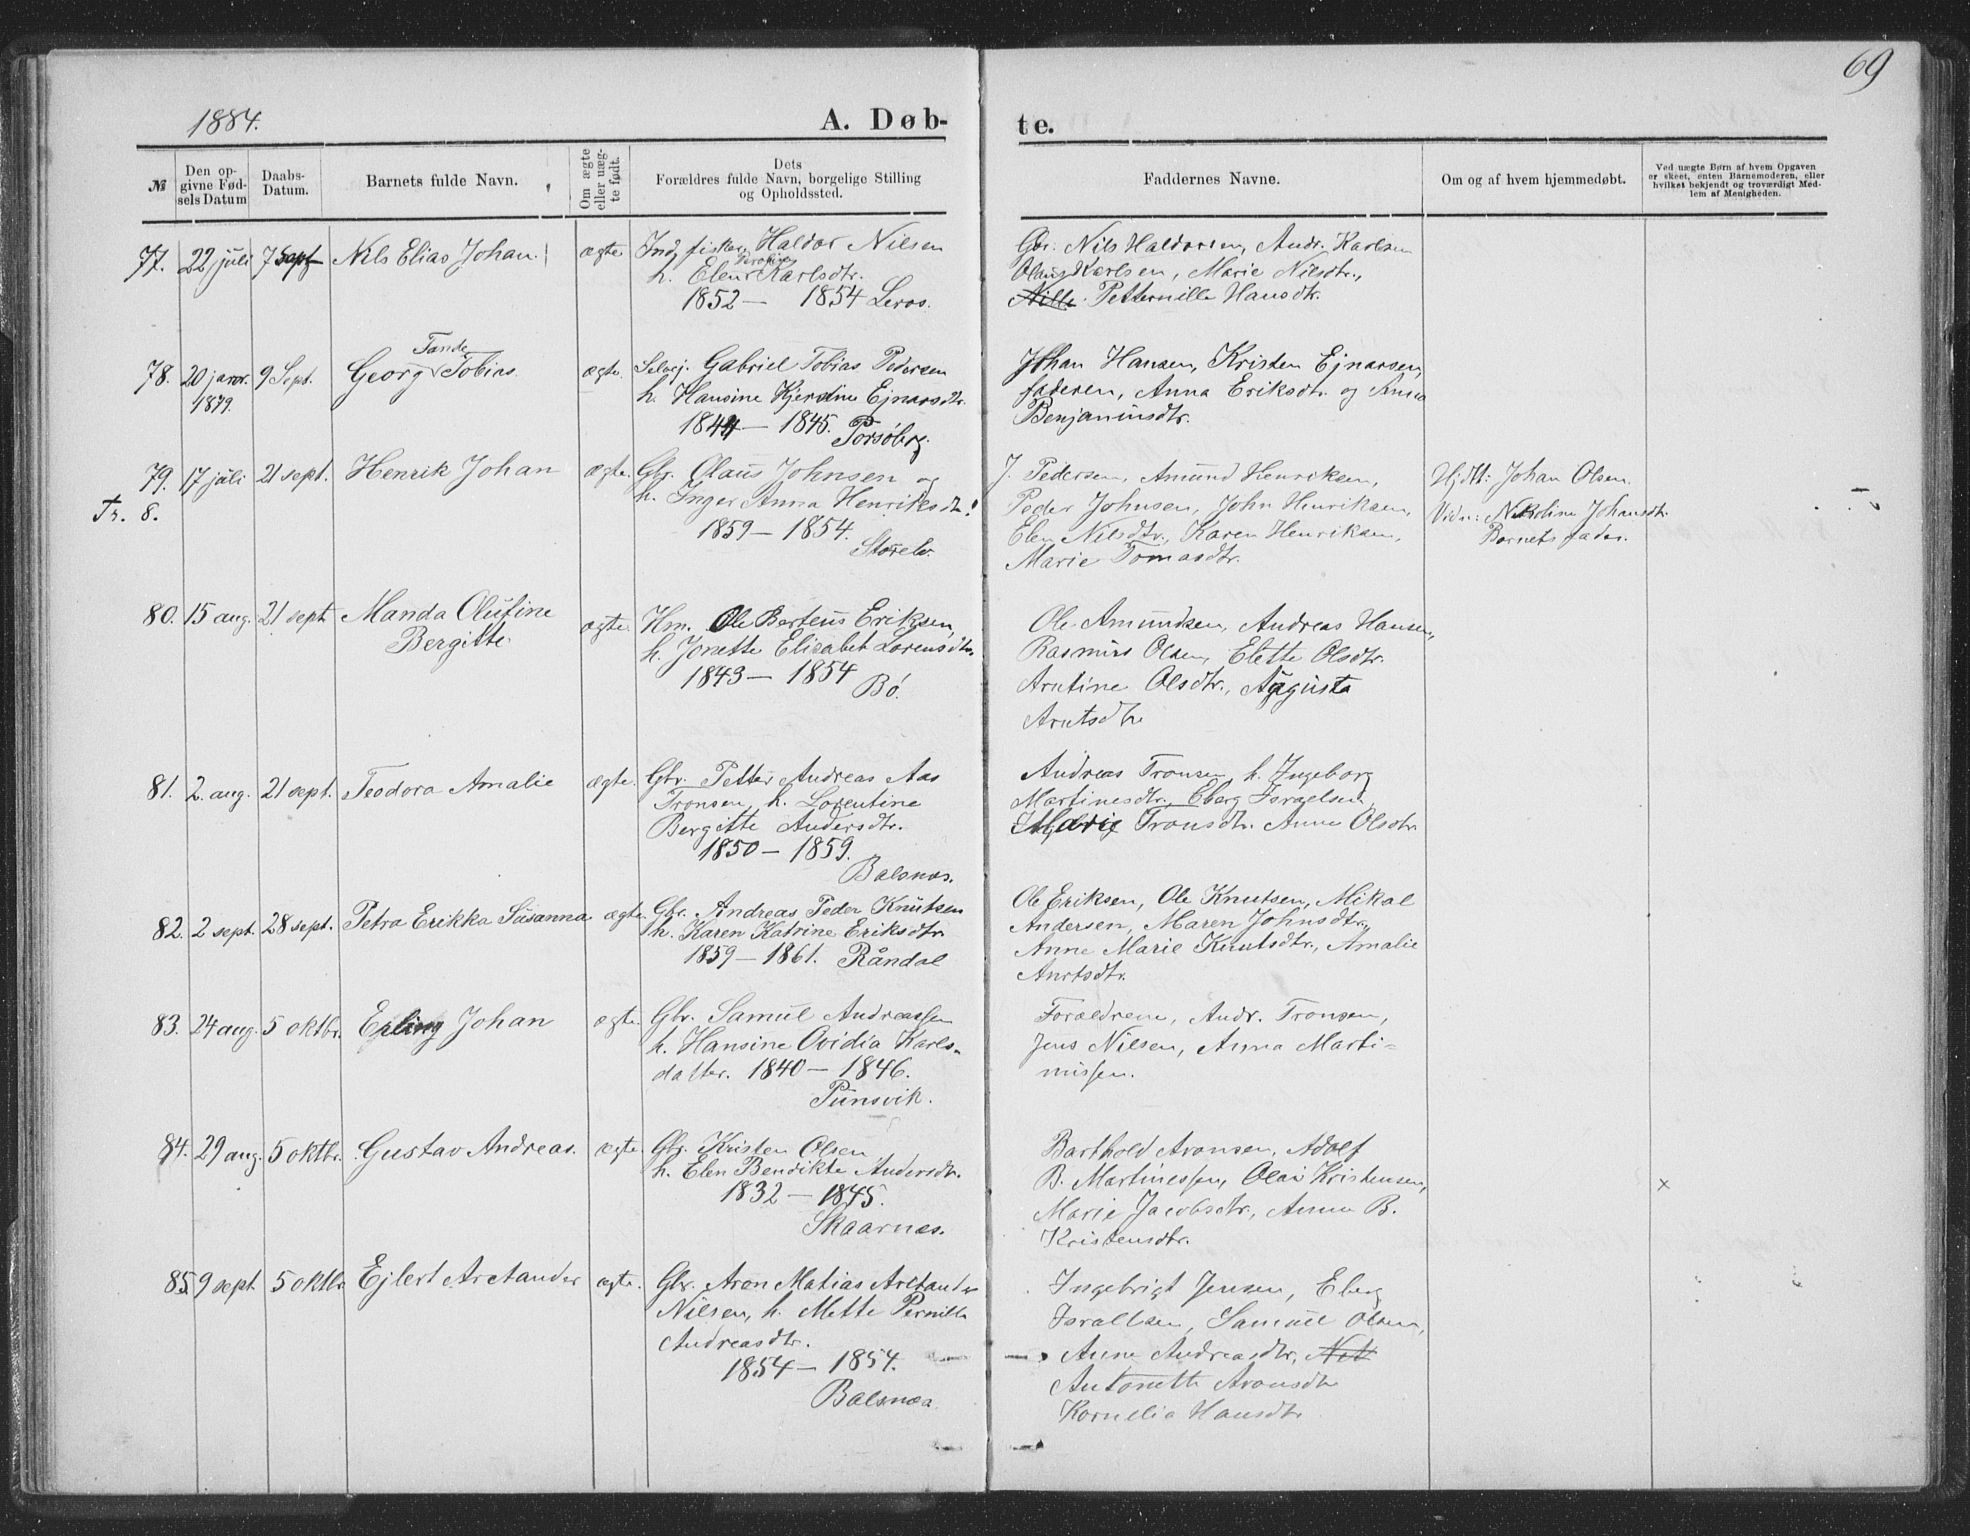 69
1884.
A. Døb-
te.
№
Den op-
givne Fød-
sels Datum
Daabs-
Datum.
Barnets fulde Navn.
Om ægte
eller uæg-
te født.
Dets
Forældres fulde Navn, borgelige Stilling
og Opholdssted.
Faddernes Navne.
Om og af hvem hjemmedøbt.
Ved uægte Børn af hvem Opgaven
er skeet, enten Barnemoderen, eller
hvilket bekjendt og troværdigt Med-
lem af Menigheden.
77. 22 juli 7 sept Nils Elias Johan ægte Ind. fisker Haldor Nilsen
h. Elen Karlsdtr.
1852 — 1854 Leros.
Gbr. Nils Haldorsen, Andr. Karlsen
Olaus Karlsen, Marie Nilsdtr.,
Nille Petternille Hansdtr.
78. 20 janr. 9 Sept. Georg Tande Tobias ægte. Selvej. Gabriel Tobias Pedersen
1879. h. Hansine Kjerstine Ejnarsdtr.
1844 — 1845. Porsøberg.
Johan Hansen, Kristen Ejnarsen,
faderen, Anna Eriksdtr. og
Benjaminsdtr.
79. 17 juli 21 sept. Henrik Johan ægte. Gbr. Olaus Johnsen og
Tr. 8. h. Inger Anna Henriksdtr.
1859 — 1854.
Storelv.
J. Pedersen, Amund Henriksen,
Peder Johnsen, John Henriksen,
Elen Nilsdtr., Karen Henriksen,
Marie Tomasdtr.
Hjdt: Johan Olsen.
Vidn: Nikoline Johansdtr.
Barnets fader.
80. 15 aug. 21 sept Manda Olufine ægte. Hm. Ole Berteus Eriksen,
Bergitte. h. Jonette Elisabet Lorensdtr.
1843 — 1854
Bø.
Ole Amundsen, Andreas Hansen,
Rasmus Olsen, Elette Olsdtr.
Arntine Olsdtr., Augusta
Arntsdtr
81. 2. aug. 21 sept. Teodora Amalie ægte. Gbr. Petter Andreas Aas
Tronsen, h. Lorentine
Bergitte Andersdtr.
1850 — 1859.
Balsnes.
Andreas Tronsen, h. Ingeborg
Martinesdtr., Eberg Israelsen
Marie Tronsdtr. Anne Olsdtr
82. 2 sept. 28 sept. Petra Erikka Susanna ægte. Gbr. Andreas Peder Knutsen
h. Karen Katrine Eriksdtr.
1859 — 1861. Råndal
Ole Eriksen, Ole Knutsen, Mikal
Andersen, Maren Johnsdtr.,
Anne Marie Knutsdtr., Amalie
Anrtsdtr.
83. 24 aug. 5 oktbr. Erling Johan ægte. Gbr. Samul Andreassen
h. Hansine Ovidia Karls-
datter. 1840 — 1846.
Punsvik.
Forældrene, Andr. Tronsen,
Jens Nilsen, Anna Marti-
nussen.
84. 29 aug. 5 oktbr. Gustav Andreas. ægte. Gbr. Kristen Olsen,
h. Elen Bendikte Andersdtr.
1832 — 1845.
Skaarnes.
Barthold Aronsen, Adolf
B. Martinessen, Olai Kristensen,
Marie Jacobsdtr., Anna B.
Kristensdtr.
x
85. 9 sept 5 oktbr Ejlert Arctander ægte. Gbr. Aron Matias Arctander
Nilsen, h. Mette Pernille
Andreasdtr.
1854 — 1854.
Balsnes
Ingebrigt Jensen, Eberg
Israelsen, Samuel Olsen,
Anne Andreasdtr.,
Antonette Aronsdtr
Kornelia Hansdtr